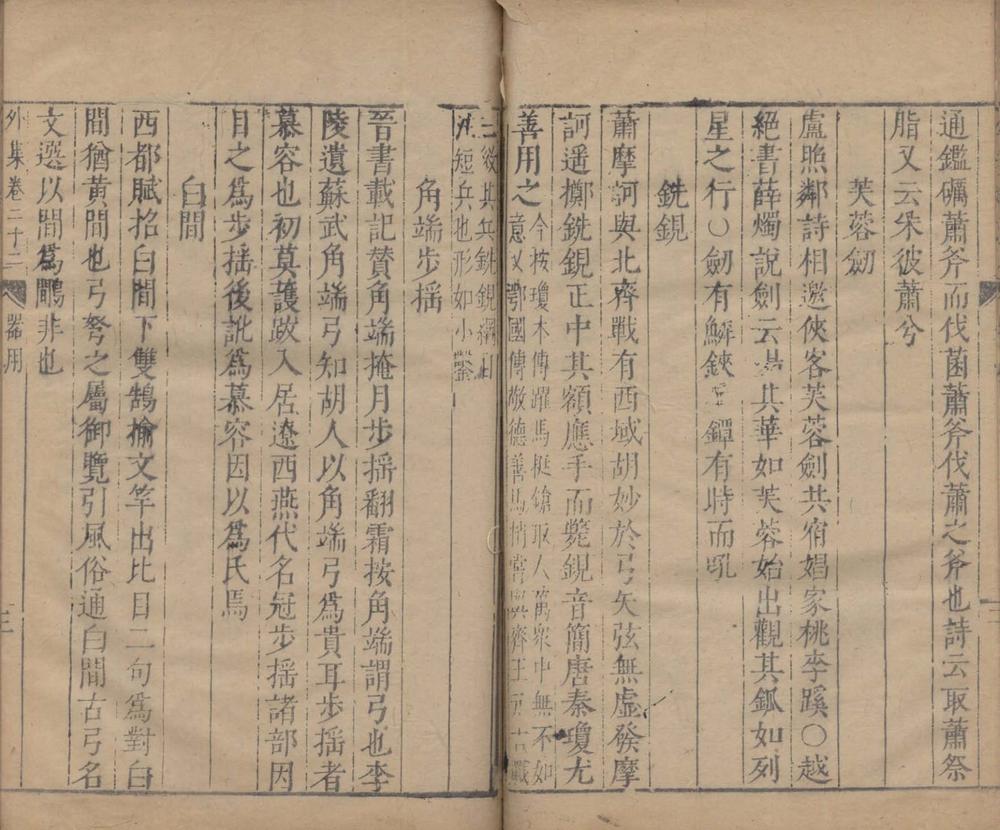 通鑑礪蕭斧而伐菌蕭斧伐蕭之斧也詩云取蕭祭
脂又云朱彼蕭兮
芙蓉劒
盧照鄰詩相邀俠客芙蓉劍共宿娼家桃李蹊○越
絕書薛燭說劍云其華如芙蓉始出觀其鈲如列
星之行○劒有鱗鋏鐔有時而吼
銑鋧
蕭摩訶與北齊戰有西域胡妙於弓矢弦無虛發摩
訶遥擲銑鋧正中其額應手而斃鋧音簡唐秦瓊尤
善用之
今按瓊木傳躍馬挺鎗取人萬衆中無不如
意又鄂國傳敬德善馬矟嘗與齊王
其兵銑鋧
短兵也形如小鑿
角端步揺
晉書載記賛角端掩月步揺翻霜按角端謂弓也李
陵遺蘇武角端弓知胡人以角端弓爲貴耳步揺者
慕容也初莫護跋入居遼西燕代名冠步揺諸部因
目之爲步揺後訛爲慕容因以爲氏焉
白間
西都賦招白間下雙鵠揄文竿出比目二句爲對白
間猶黃間也弓弩之屬御覽引風俗通白間古弓名
文選以間爲鷴非也
外集卷二十二
器用
三